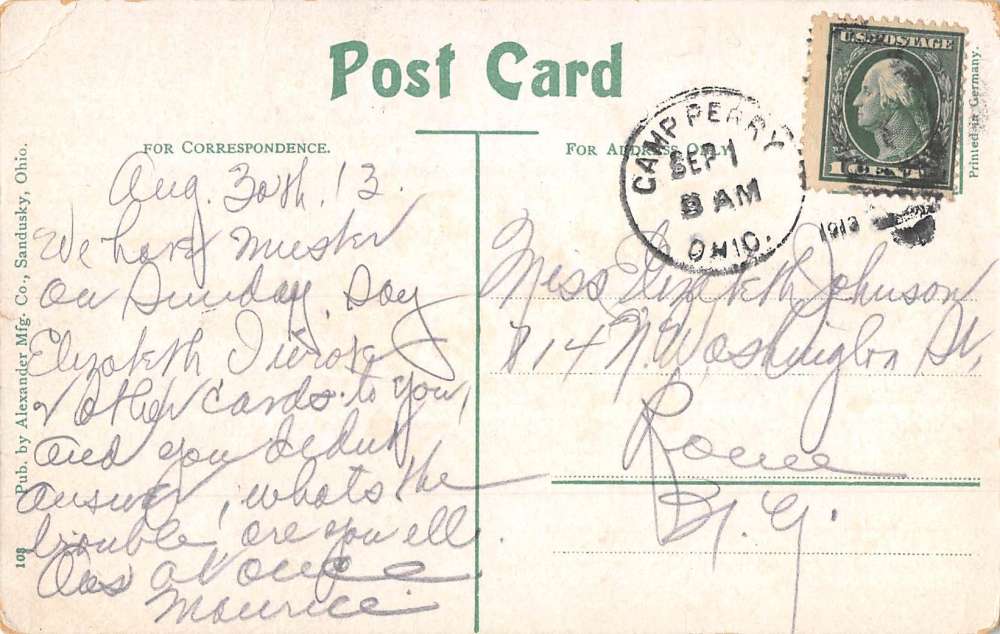 Post Card
FOR CORRESPONDENCE.
FOR ADDRESS ONLY.
Pub. by Alexander Mfg. Co., Sandusky, Ohio.
108
Printed in Germany.
U.S. POSTAGE
1 CENT 1
CAMP PERRY
SEP 1
8 AM
OHIO.
1913
Aug. 30th. 13.
We have muster
on Sunday, Say
Elizabeth I wrote
2 other cards to you,
and you didnt
answer, whats the
trouble, are you ill.
Ans at once
Maurice.
Miss Elizabeth Johnson
714 N. Washington St,
Rome
N. Y.